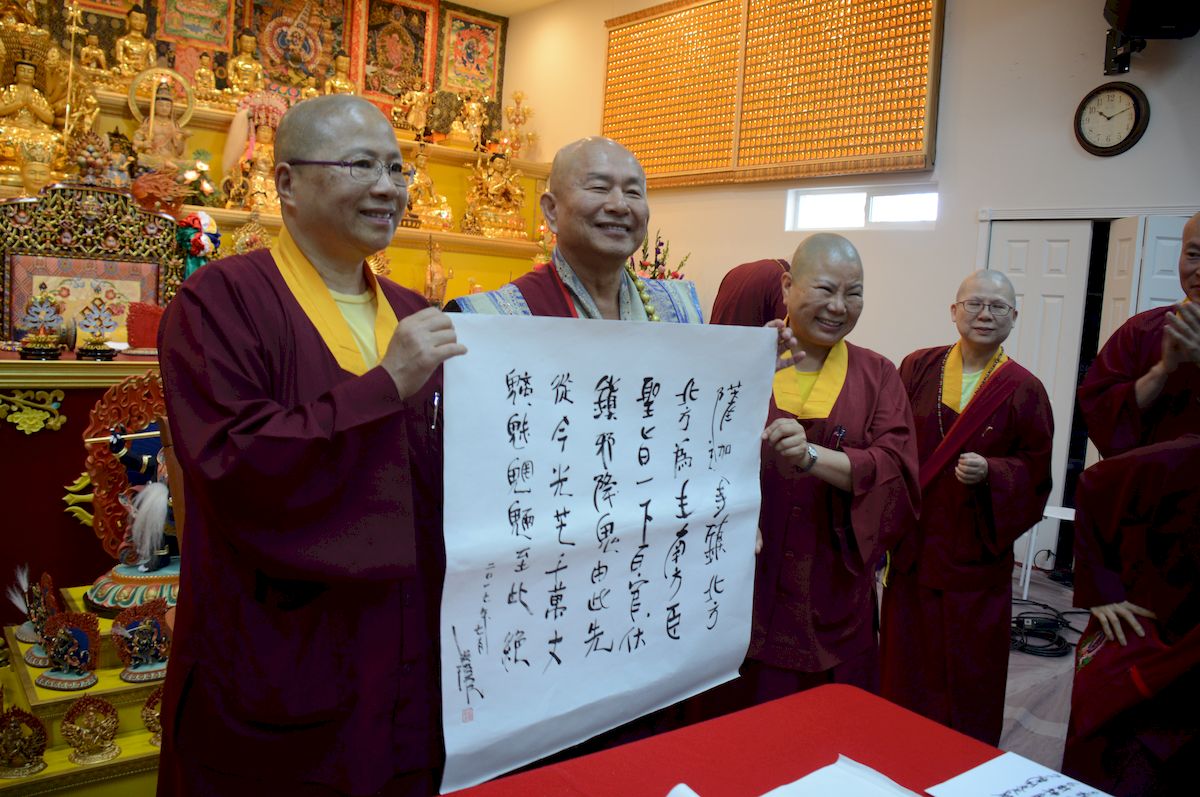 薩迦 鎮北方
北方為主南方臣
聖旨一下百官伏
鎖邪降鬼由此先
從今光芒千萬丈
魑魅魍魎至此絕
二〇一七年七月